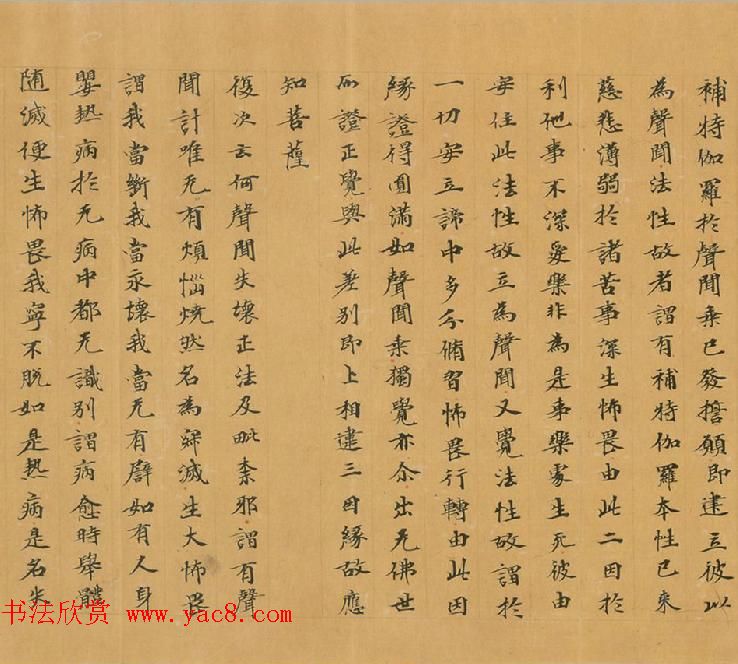 補特伽羅於聲聞乘已發擔願即建立彼以
為聲聞法性故者謂有補特伽羅本性已來
慈悲薄弱於諸苦事深生怖畏由此二因於
利他事不深愛樂非為是事樂處生死彼由
安住此法性故立為聲聞又覺法性故謂於
一切安立諦中多分脩習怖畏行轉由此因
緣證得圓滿如聲聞乘獨覺亦尒出无佛世
而證正覺與此差別即上相違三因緣故應
知菩薩
復次云何聲聞失壞正法及毗柰邪謂有聲
聞計唯无有煩惱燒然名為寂滅生大怖畏
謂我當斷我當永壞我當无有譬如有人身
嬰熱病於无病中都无識別謂病愈時舉體
随滅便生怖畏我寧不脫如是熱病是名失
书法欣赏 www.yac8.com